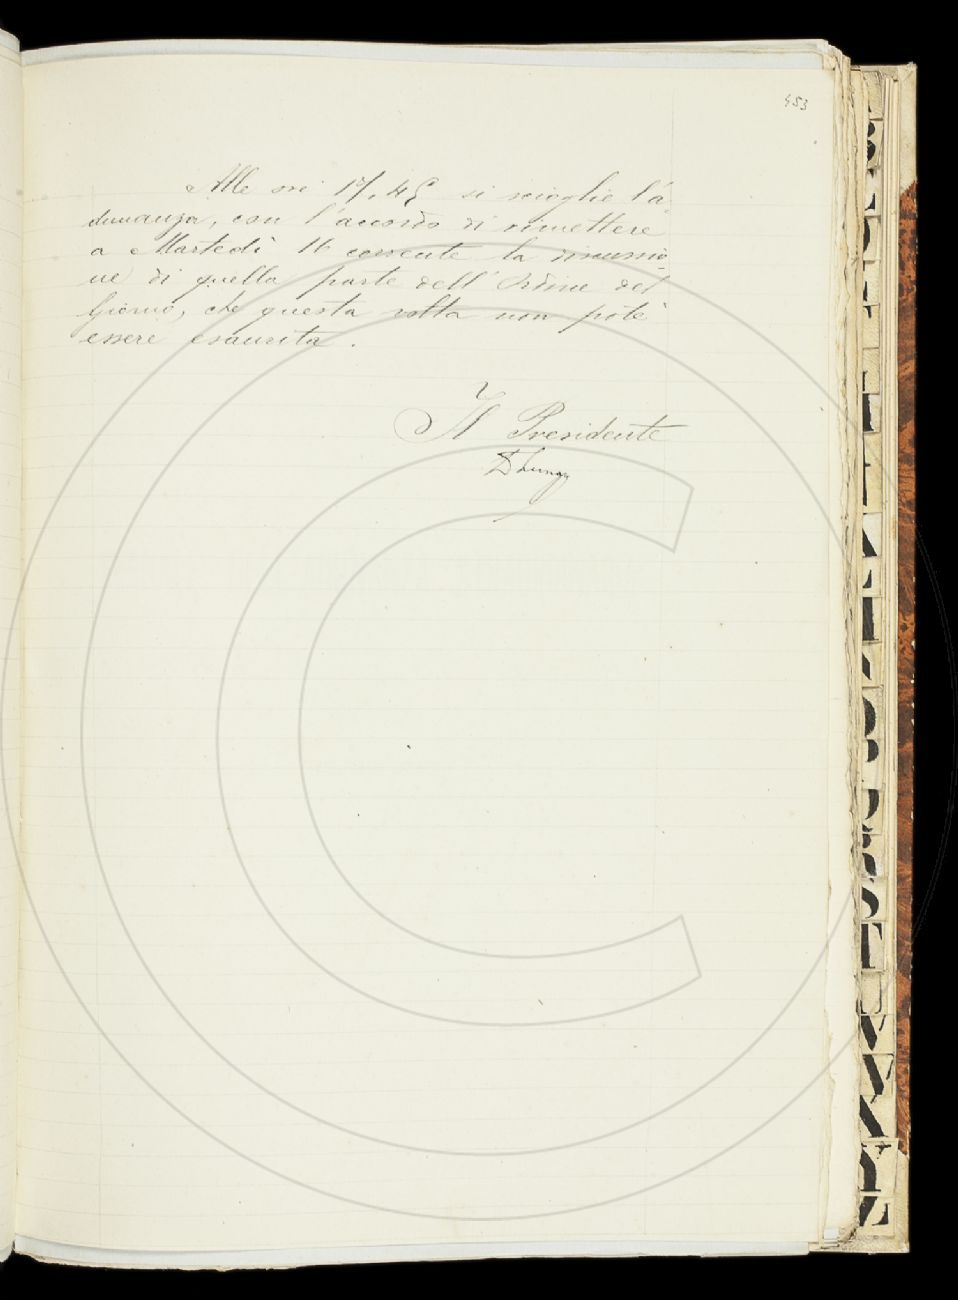 453
Alle ore 17,45 si scioglie l'a
dunanza, con l'accordo di rimettere
a Martedì 16 corrente la discussio
ne di quella parte dell'Ordine del
Giorno, che questa volta non potè
essere esaurita.
Il Presidente
B
C
D
E
F
H
I
K
L
M
O
P
Q
R
S
T
U
V
X
Y
Z